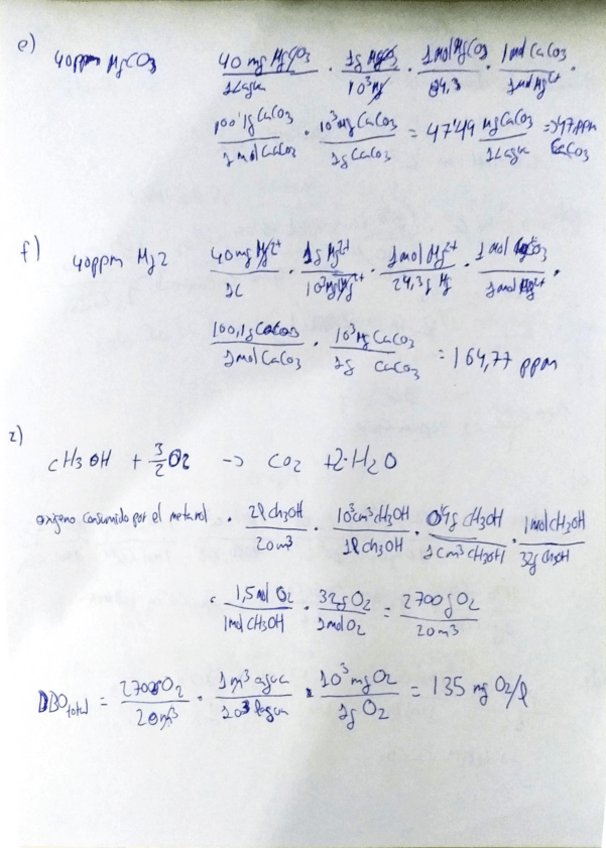 e) 40ppm MgCO3 40 mg MgCO3 / 1L agua · 1g MgCO3 / 10³mg · 1mol MgCO3 / 84,3 · 1mol CaCO3 / 1mol Mg2+ ·
100'1g CaCO3 / 1mol CaCO3 · 10³mg CaCO3 / 1g CaCO3 = 47'49 mg CaCO3 / 1L agua => 47 ppm CaCO3
f) 40ppm Mg2 40mg Mg2+ / 1L · 1g Mg2+ / 10³mg Mg2+ · 1mol Mg2+ / 24,3g Mg · 1mol CO3 / 1mol Mg2+ ·
100,1g CaCO3 / 1mol CaCO3 · 10³mg CaCO3 / 1g CaCO3 = 164,77 ppm
2)
CH3OH + 3/2 O2 -> CO2 + 2·H2O
oxígeno consumido por el metanol · 2l CH3OH / 20m³ · 10³cm³ CH3OH / 1l CH3OH · g CH3OH / 1cm³ CH3OH · 1mol CH3OH / 32g CH3OH
· 1,5mol O2 / 1mol CH3OH · 32g O2 / 1mol O2 = 2700g O2 / 20m³
DBO total = 2700gO2 / 20m³ · 1m³ agua / 10³ l agua · 10³ mg O2 / 1g O2 = 135 mg O2/l